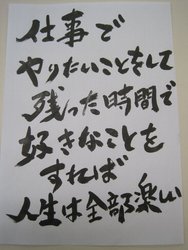 仕事で
やりたいことをして
残った時間で
好きなことを
すれば
人生は全部楽しい